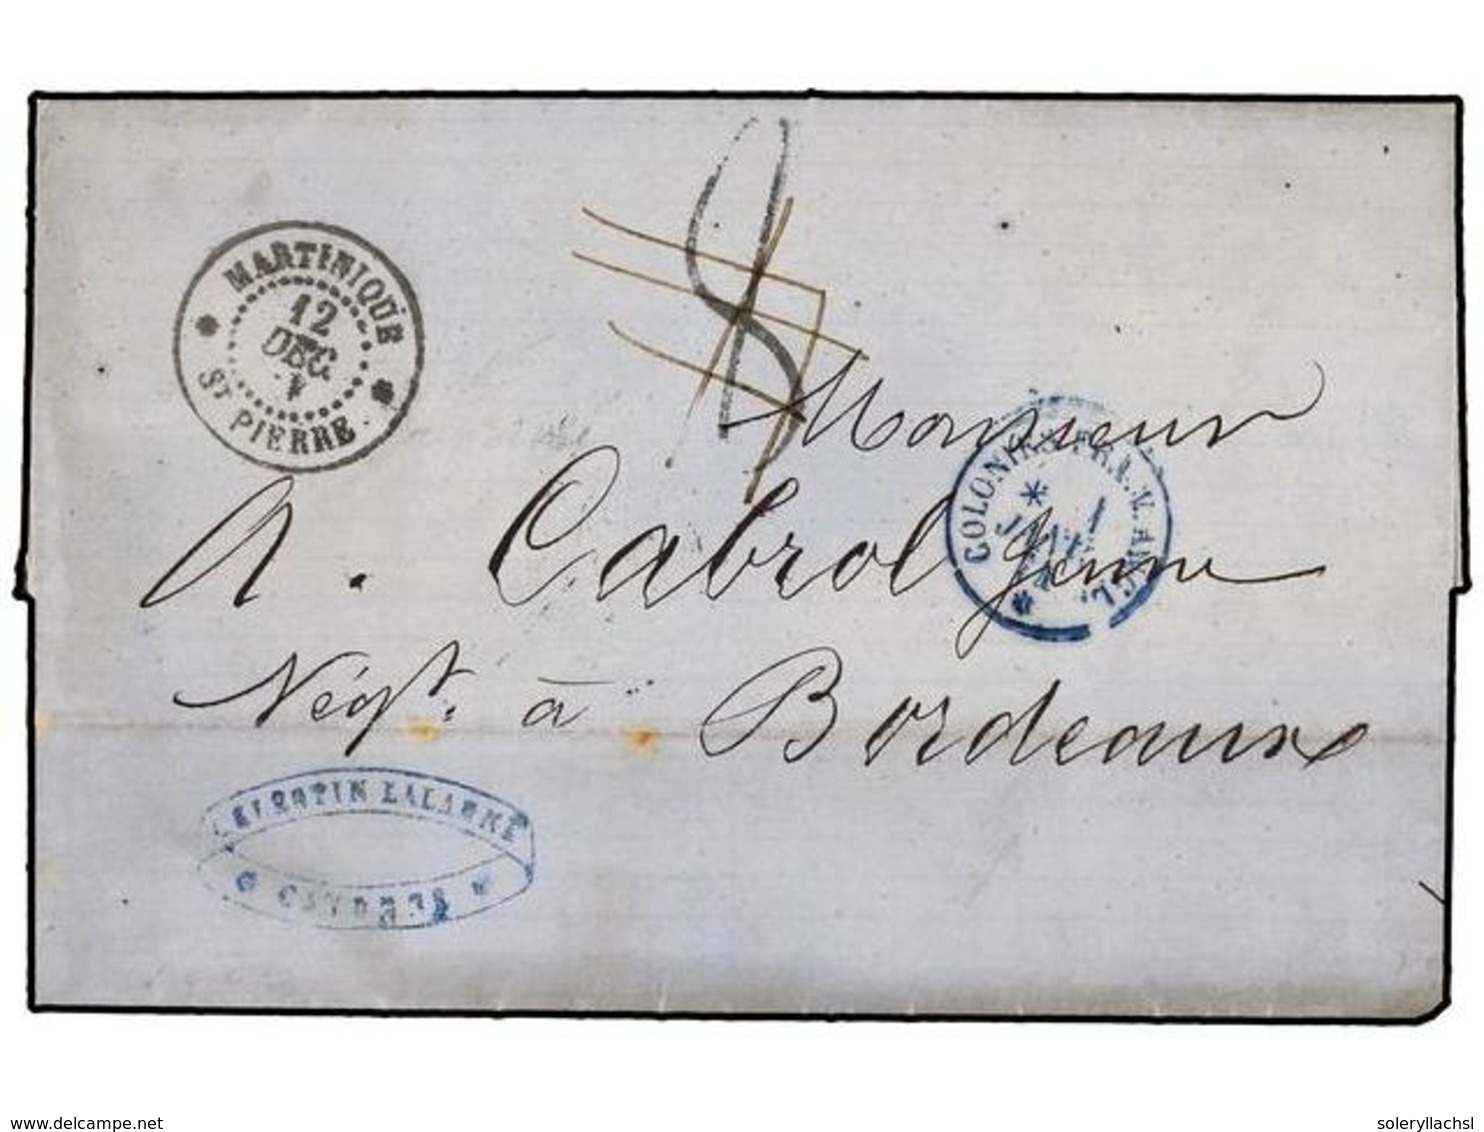 MARTINIQUE
12
DEC
ST PIERRE.
8
Monsieur
A. Cabrol Jeune
Négt. à Bordeaux
COLONIES FRA. V. ANGL.
CELESTIN LALANNE
CAYENNE
delcampe.net
soleryllachsl